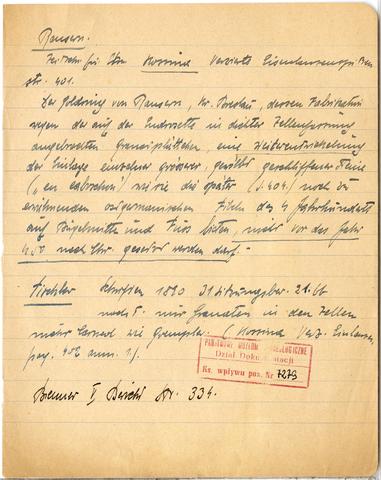 Ransern.
Kossina Verzierte Eisenlanzenspitzen
str. 401.
Der Goldring von Ransern, Kr. Breslau, dessen Fabrikation
wegen der auf der in dichter Zellenfassung
angebrachten Granatplättchen, eine Weiterentwickelung
der Einlage einzelner grösserer, gewölbt geschliffener Steine
("en cabochon") wie sie die später (S. 404) noch zu
erwähnenden ostgermanischen Fibeln des 4 Jahrhunderts
auf Bügelmitte und Fuss bieten, nicht vor das Jahr
400 nach Chr. gesetzt werden darf."
Tischler Schriften 1890 31 Sitzungsber. 21.
nur Granaten in den Zellen
(Kossina Verz. Eisenlanzen
pag. 402 anm. 1).
PAŃSTWOWE MUZEUM ARCHEOLOGICZNE
Dział Dokumentacji
Ks. wpływu poz. Nr 7273
Bremer II Bericht Nr. 334.